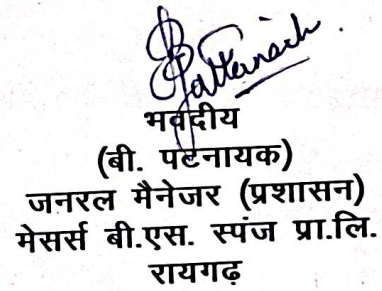 B Pattanaik
भवदीय
(बी. पटनायक)
जनरल मैनेजर (प्रशासन)
मेसर्स बी.एस. स्पंज प्रा.लि.
रायगढ़